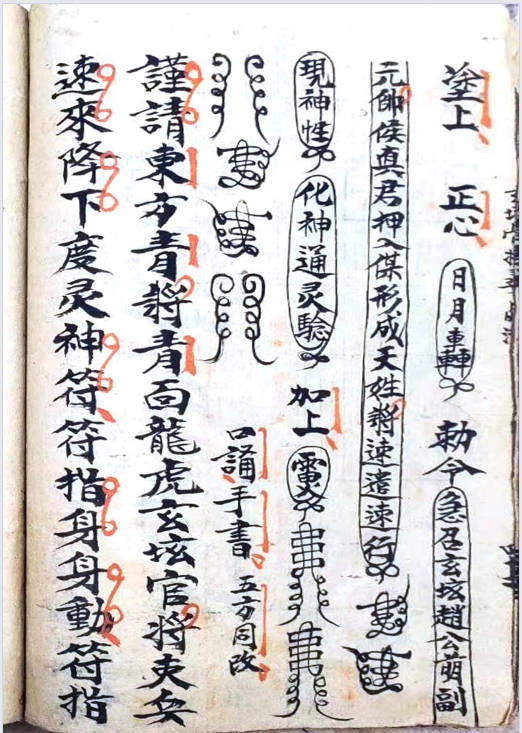 塗上 正心 日月 勅令 急召玄坛趙公萌副
元帥侯真君押入供形成天姓將速遣速行
現神性 化神通灵驗 加上
口誦 手書 五方同改
謹請東方青將青面龍虎玄坛官將夫兵
速來降下度灵神符符指身身動符指